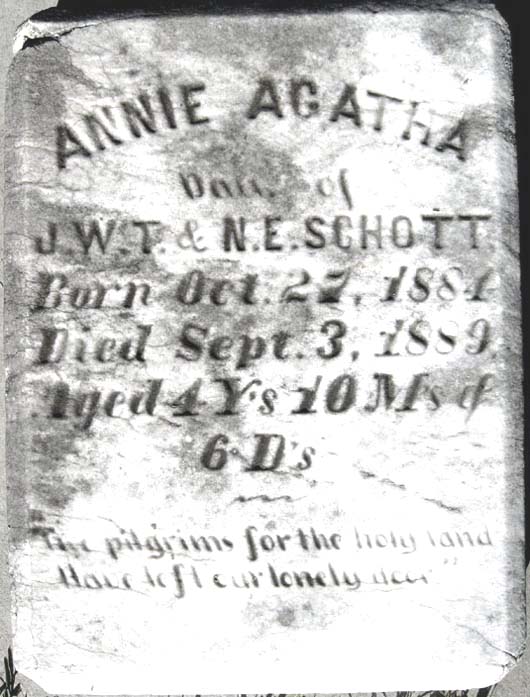 ANNIE AGATHA
Dau. of
J.W.T. & N.E. SCHOTT.
Born Oct. 27, 1884
Died Sept. 3, 1889.
Aged 4 Y's 10 M's &
6 D's
The pilgrims for the holy land
Have left our lonely door"